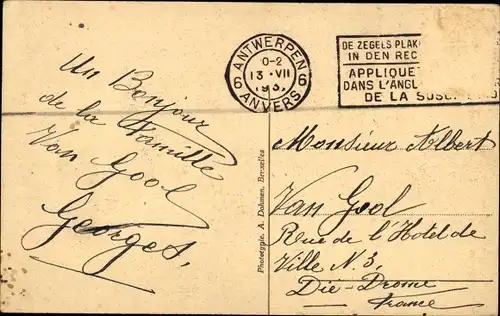 Un Bonjour
de la famille
Van Gool
Georges,
Phototypie. A. Dohmen, Bruxelles
ANTWERPEN
6 6
0-2
13·VII
193
ANVERS
DE ZEGELS PLAK
IN DEN REC
APPLIQUE
DANS L'ANGL
DE LA
Monsieur Albert
Van Gool
Rue de l'Hotel de
Ville N. 3,
Die-Drome
France